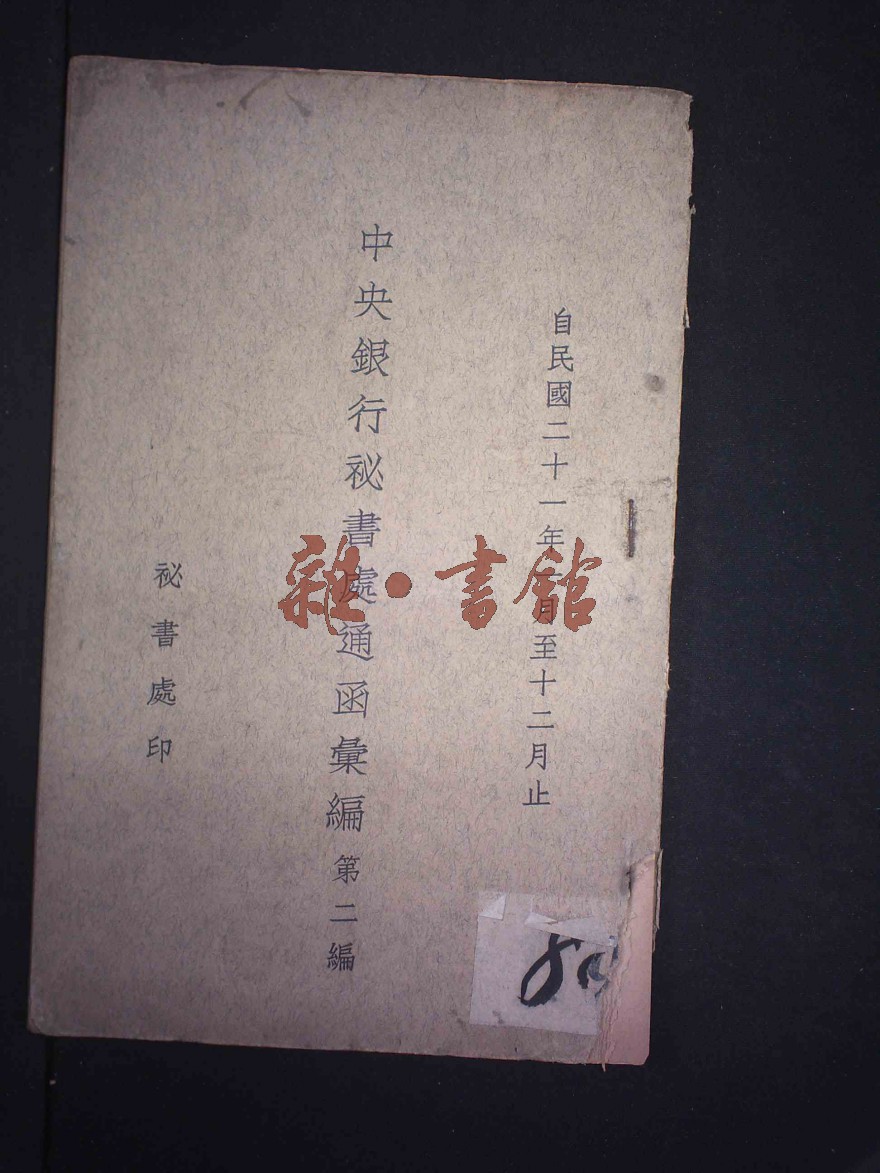 自民國二十一年 月至十二月止
中央銀行祕書處通函彙編 第二編
祕書處印
雜·書館